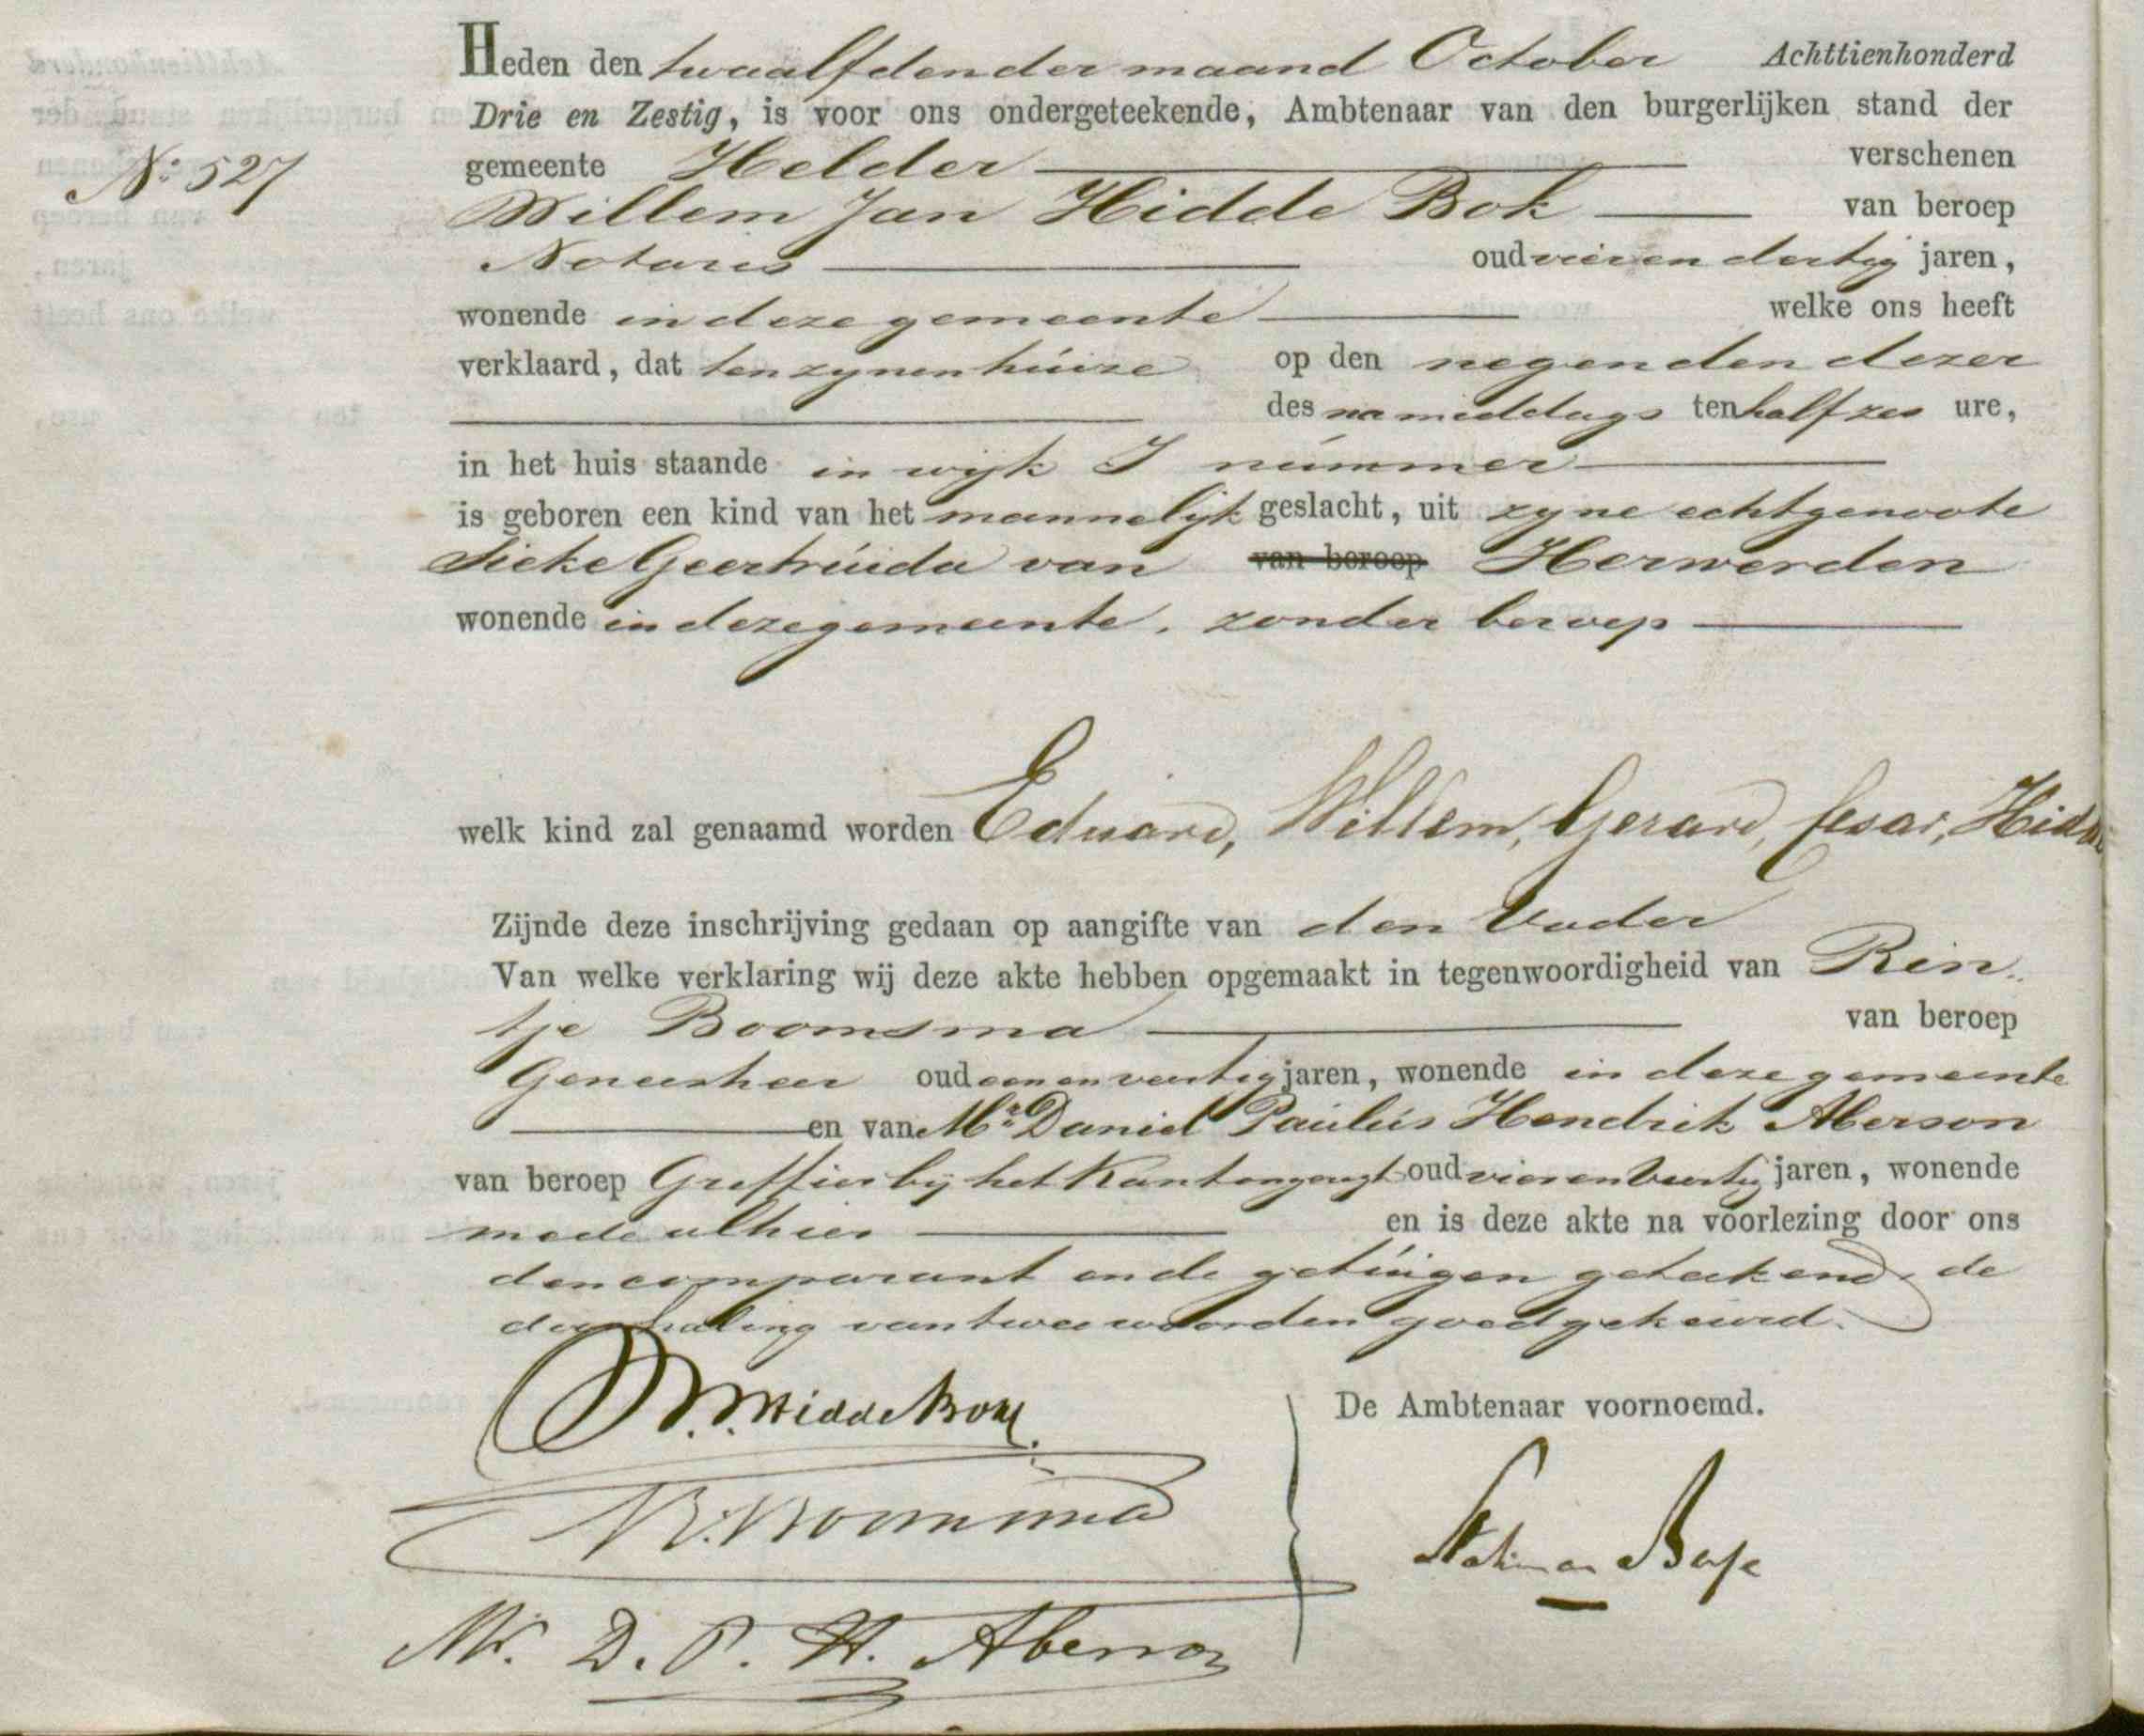 Heden den twaalfden der maand October Achttienhonderd
Drie en Zestig, is voor ons ondergeteekende, Ambtenaar van den burgerlijken stand der
No: 527
gemeente Helder verschenen
Willem Jan Hidde Bok van beroep
Notaris oud vier en dertig jaren,
wonende in deze gemeente welke ons heeft
verklaard, dat ten zynen huize op den negenden dezer
des na middags ten half zes ure,
in het huis staande in wyk I nummer
is geboren een kind van het mannelyk geslacht, uit zyne echtgenoote
Sieke Geertruida van van beroep Herwerden
wonende in deze gemeente, zonder beroep
welk kind zal genaamd worden Eduard, Willem, Gerard, Cesar, Hidde
Zijnde deze inschrijving gedaan op aangifte van den Vader
Van welke verklaring wij deze akte hebben opgemaakt in tegenwoordigheid van Rin
tje Boomsma van beroep
Geneesheer oud een en veertig jaren, wonende in deze gemeente
en van Mr. Daniel Paulus Hendrik Aberson
van beroep Griffier by het Kantongeregt oud vier en veertig jaren, wonende
mede alhier en is deze akte na voorlezing door ons
den comparant en de getuigen geteekend, de
doorhaling van twee woorden goedgekeurd.
W.J. Hidde Bok
De Ambtenaar voornoemd.
R. Boomsma
Stakman Bosse
Mr. D. P. H. Aberson